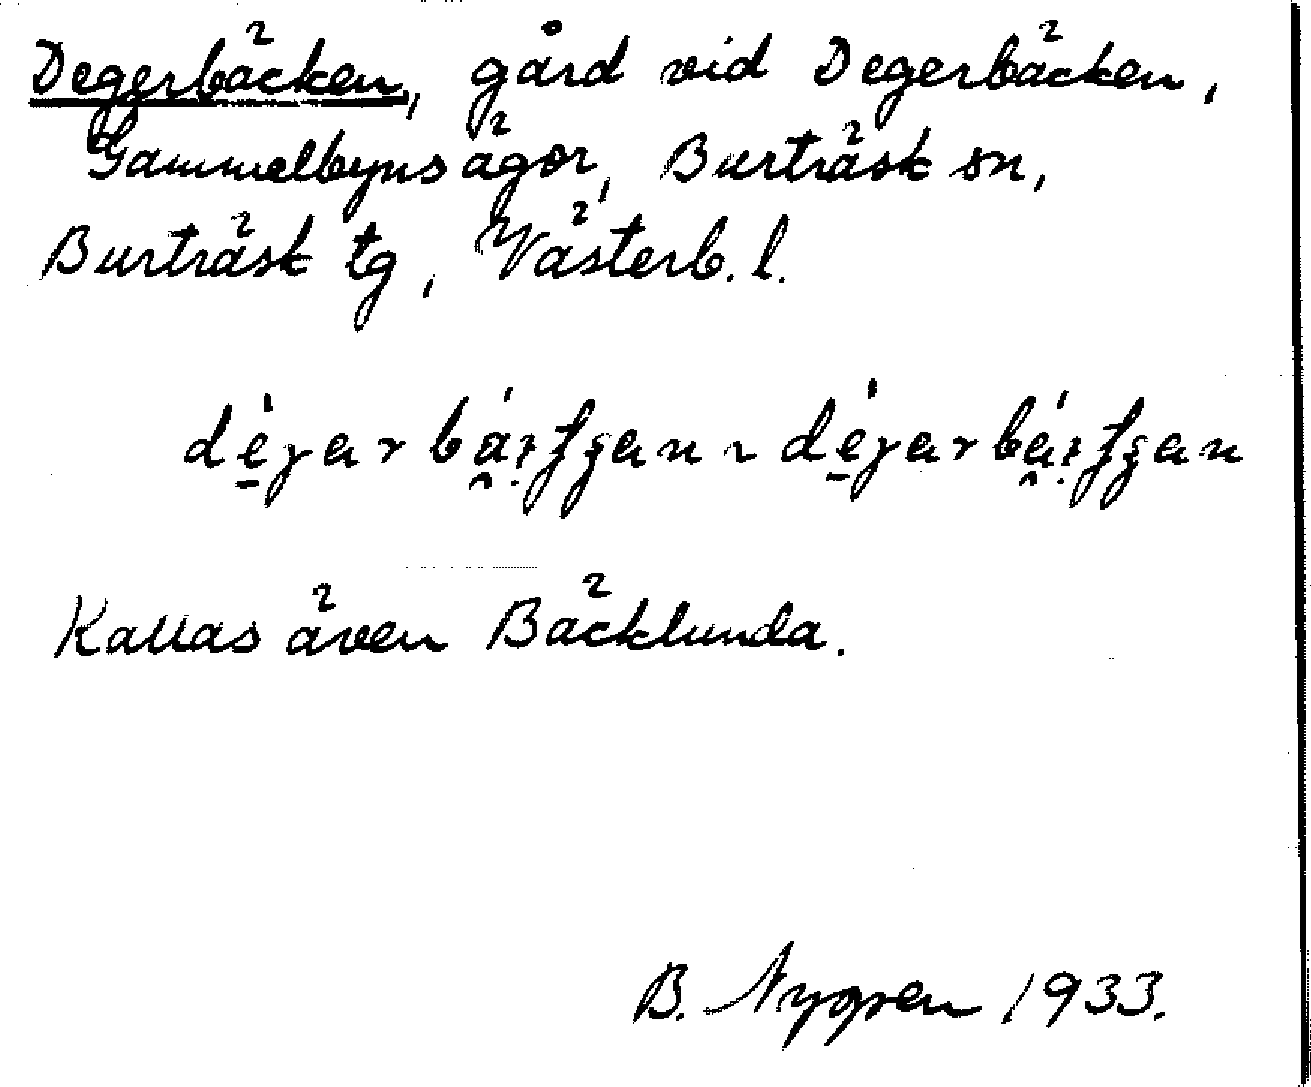 Degerbäcken, gård vid Degerbäcken,
Gammelbyns ägor, Burträsk sn,
Burträsk tg, Västerb. l.
Kallas även Bäcklunda.
B. Nygren 1933.